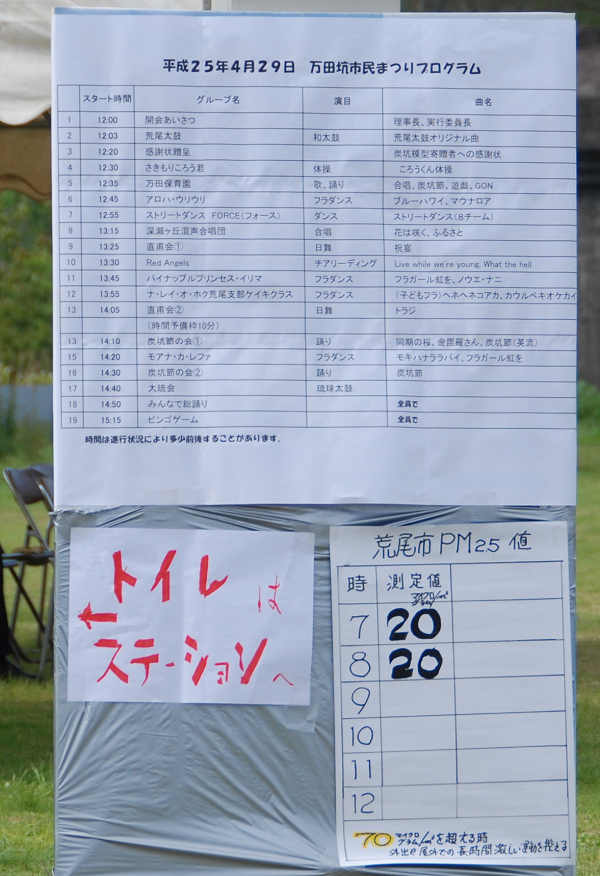 平成25年4月29日　万田坑市民まつりプログラム
スタート時間 グループ名 演目 曲名
1 12:00 開会あいさつ 理事長、実行委員長
2 12:03 荒尾太鼓 和太鼓 荒尾太鼓オリジナル曲
3 12:20 感謝状贈呈 炭坑模型寄贈者への感謝状
4 12:30 さきもりころう君 体操 ころうくん体操
5 12:35 万田保育園 歌、踊り 合唱、炭坑節、遊戯、GON
6 12:45 アロハ・ウリウリ フラダンス ブルーハワイ、マウナロア
7 12:55 ストリートダンス FORCE(フォース) ダンス ストリートダンス(8チーム)
8 13:15 深瀬ヶ丘混声合唱団 合唱 花は咲く、ふるさと
9 13:25 直甫会① 日舞 祝宴
10 13:30 Red Angels チアリーディング Live while we're young, What the hell
11 13:45 パイナップルプリンセス・イリマ フラダンス フラガール虹を、ノウエ・ナニ
12 13:55 ナ・レイ・オ・ホク荒尾支部ケイキクラス フラダンス (子どもフラ)ヘネヘネコアカ、カウルベキオケカイ
13 14:05 直甫会② 日舞 トラジ
(時間予備枠10分)
13 14:10 炭坑節の会① 踊り 同期の桜、金毘羅さん、炭坑節(英流)
15 14:20 モアナ・カ・レファ フラダンス モキハナララバイ、フラガール虹を
16 14:30 炭坑節の会② 踊り 炭坑節
17 14:40 大琉会 琉球太鼓
18 14:50 みんなで総踊り 全員で
19 15:15 ビンゴゲーム 全員で
時間は進行状況により多少前後することがあります。
トイレは
←
ステーションへ
荒尾市 PM2.5 値
時 測定値
7 20
8 20
9
10
11
12
70 マイクログラム/m³を超える時
外出や屋外での長時間激しい運動を控える